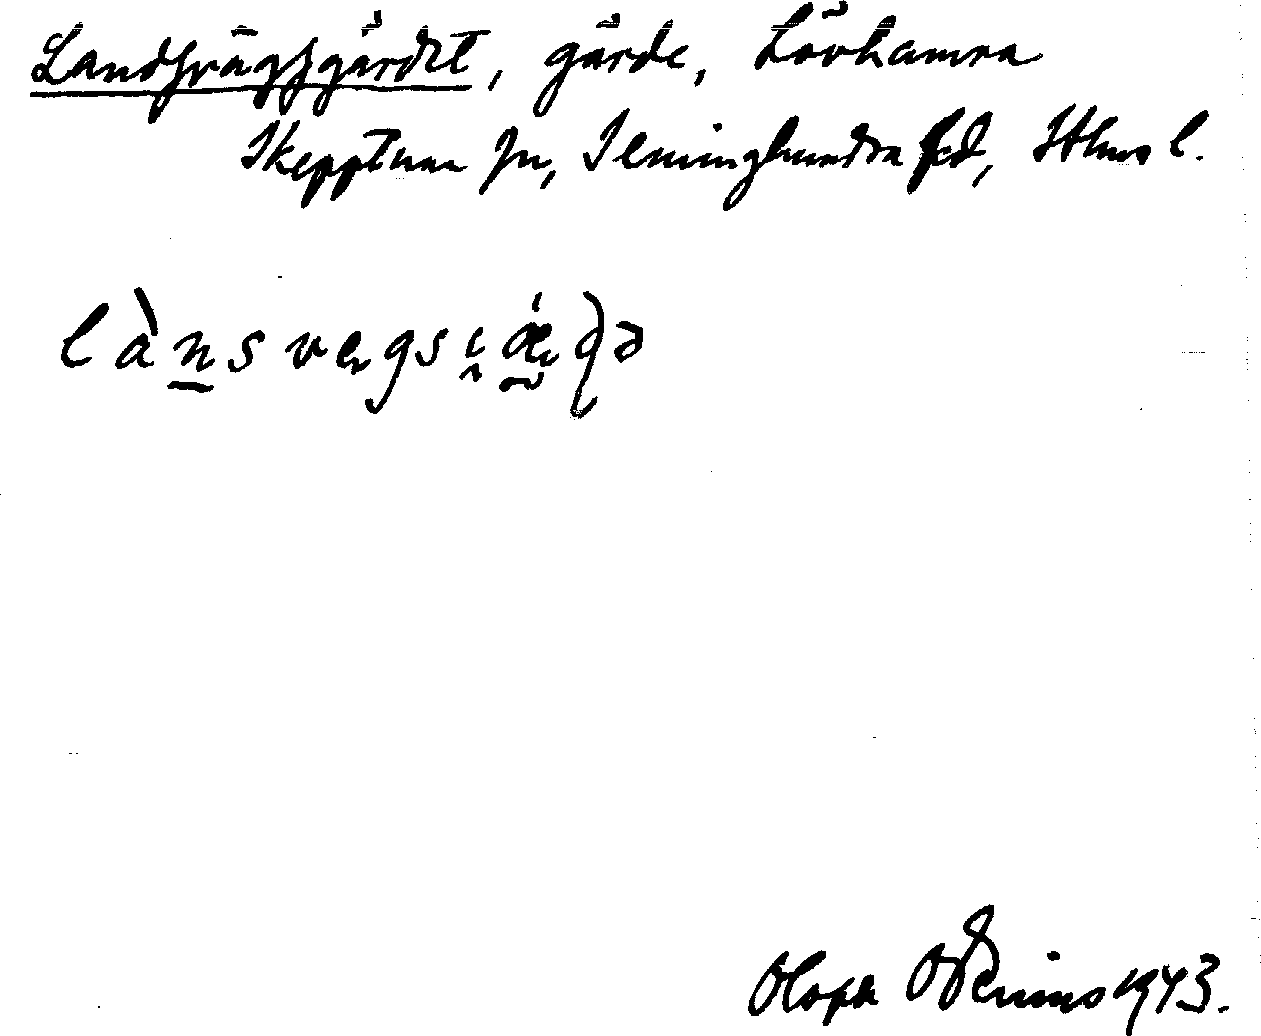 Landsvägsgärdet, gärde, Lövhamra
Skepptuna sn, Seminghundra hd, Sthms l.
lànsvægsɩ̯ǽḍə
Olof Odenius 1943.